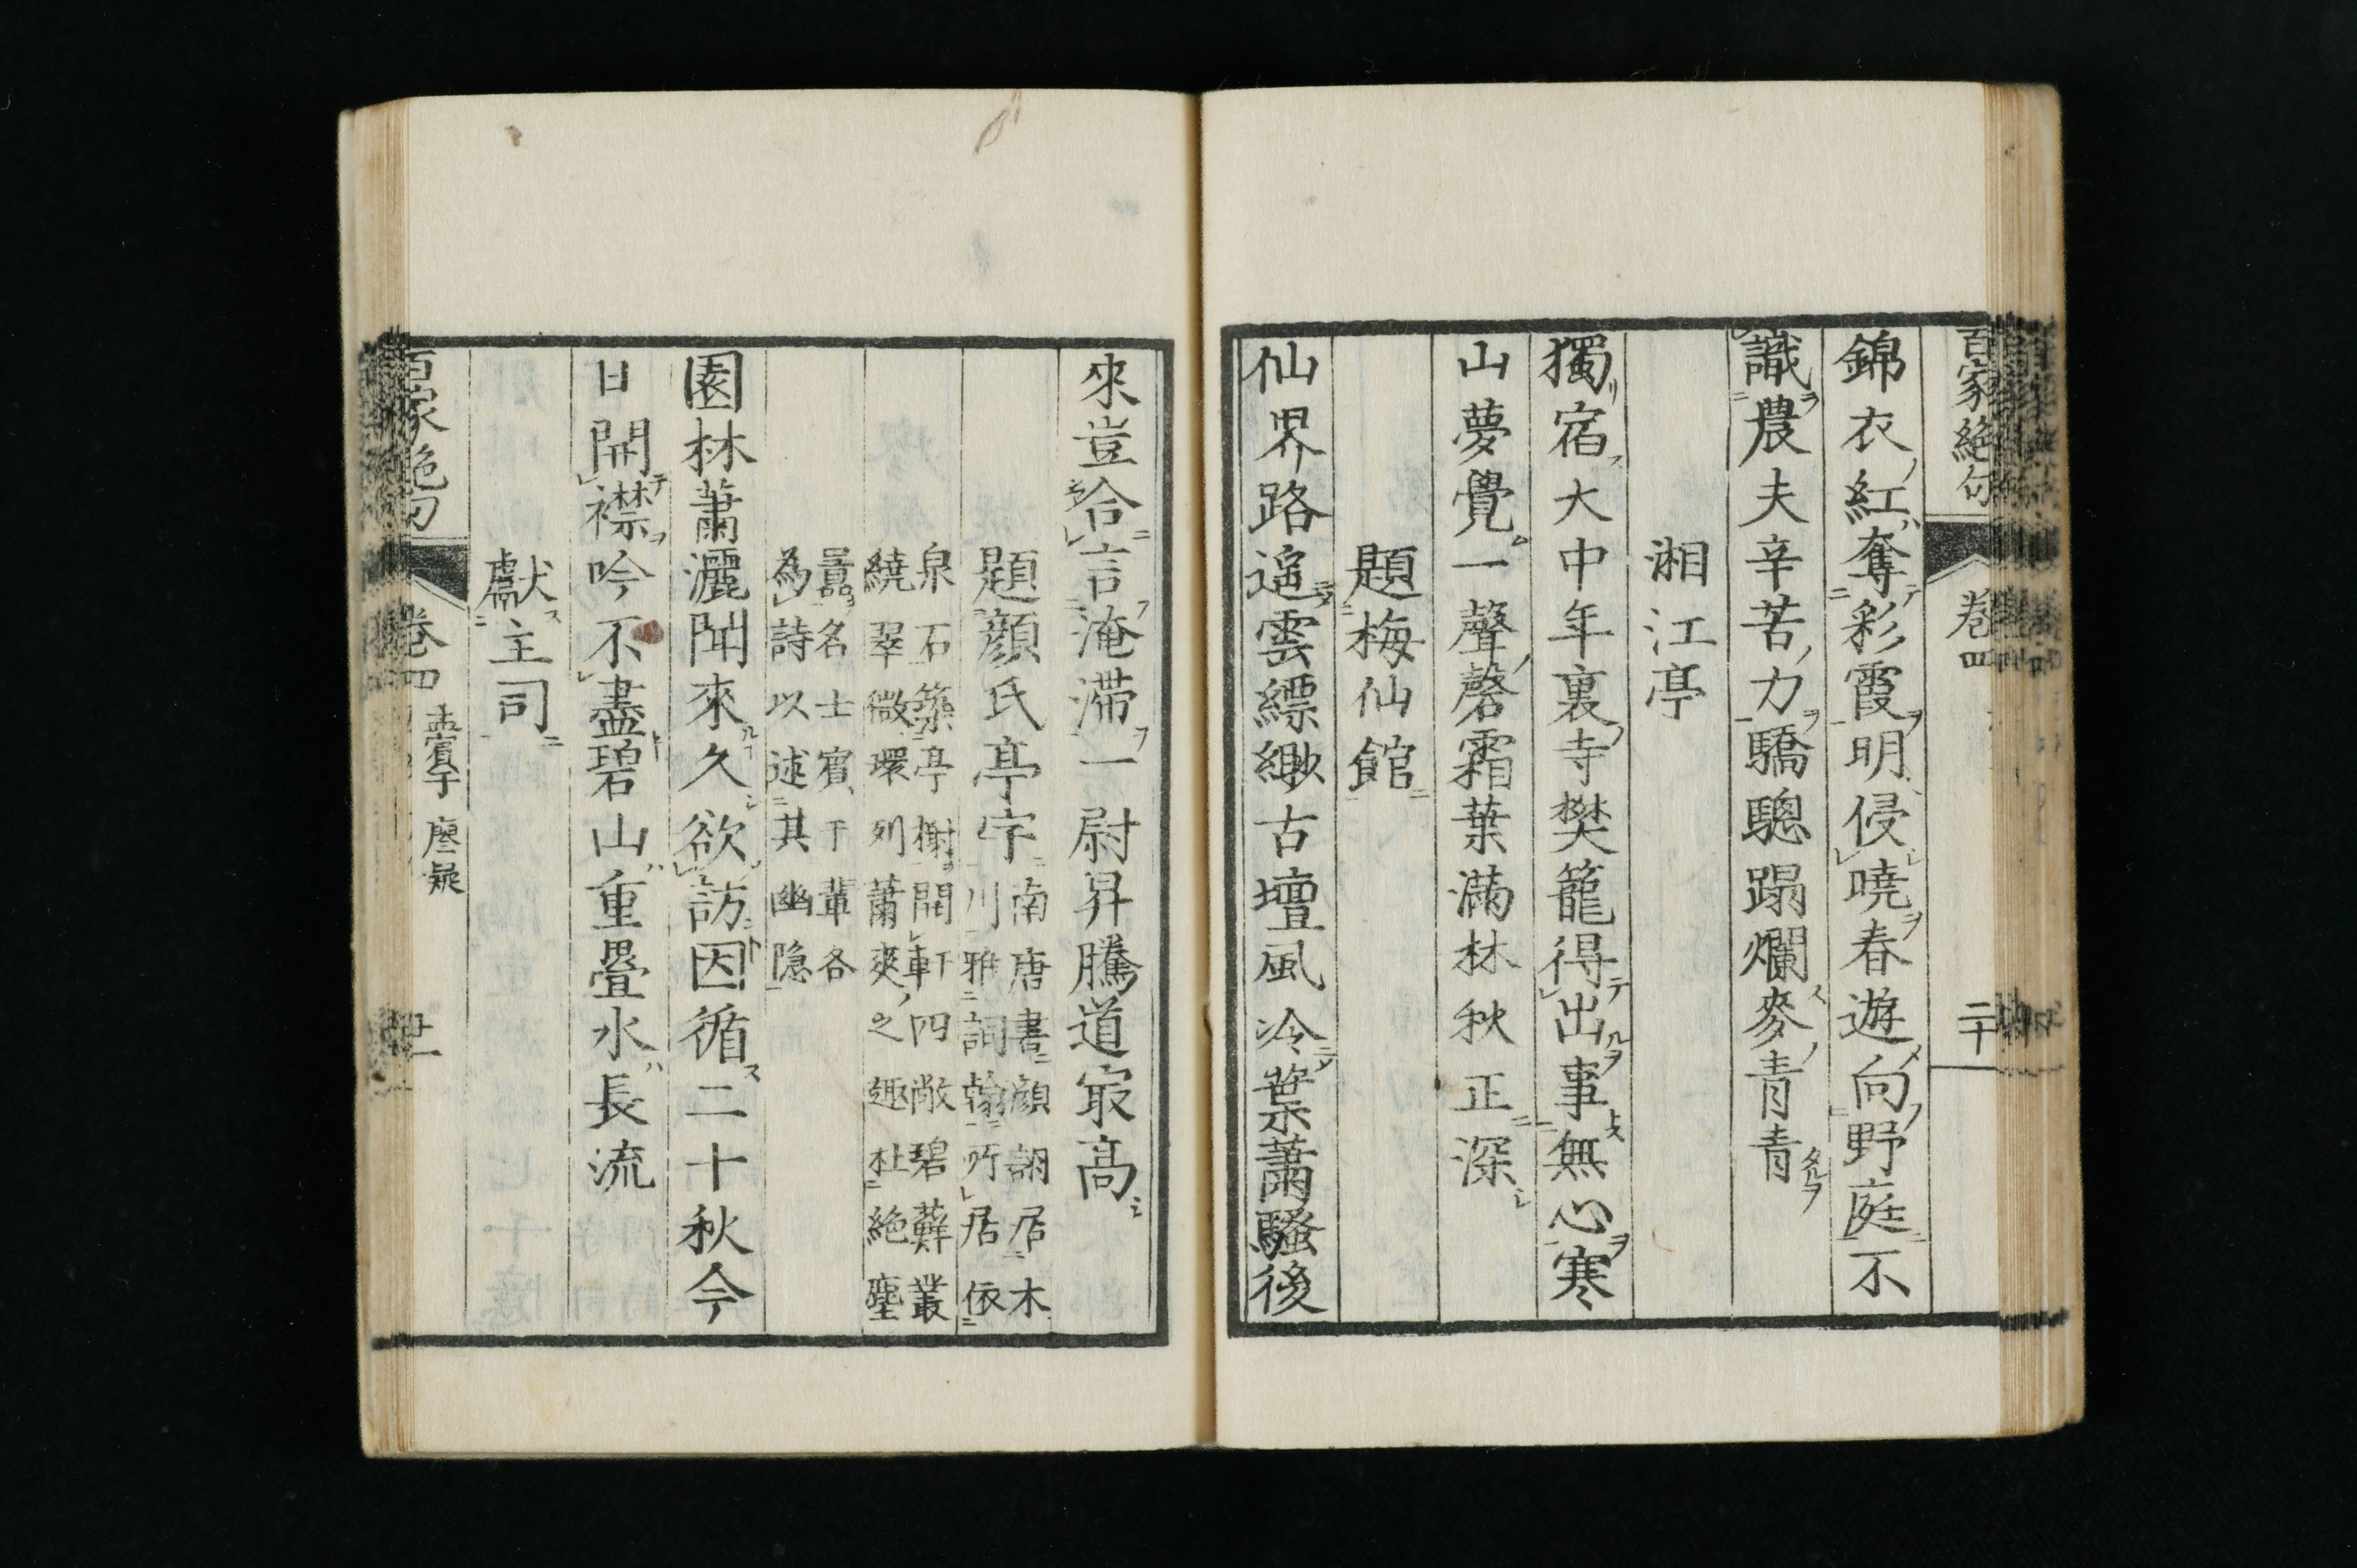 百家絶句 卷四 二十
錦衣紅奪彩霞明侵曉春遊向野庭不
識農夫辛苦力驕驄蹋爛麥青青
湘江亭
獨宿大中年裏寺樊籠得出事無心寒
山夢覺一聲磬霜葉滿林秋正深
題梅仙館
仙界路遙雲縹緲古壇風冷葉蕭騷後
來豈合言淹滯一尉昇騰道㝡高
題顏氏亭宇
南唐書顏詡居木
川雅詞翰所居依
泉石築亭榭開軒四敞碧蘚叢
繞翠微環列蕭爽之趣杜絶塵
囂名士賓于輩各
為詩以述其幽隐
園林蕭灑聞來久欲訪因循二十秋今
日開襟吟不盡碧山重疊水長流
獻主司
百家絶句 卷四 孟賓于 廖凝 廿一